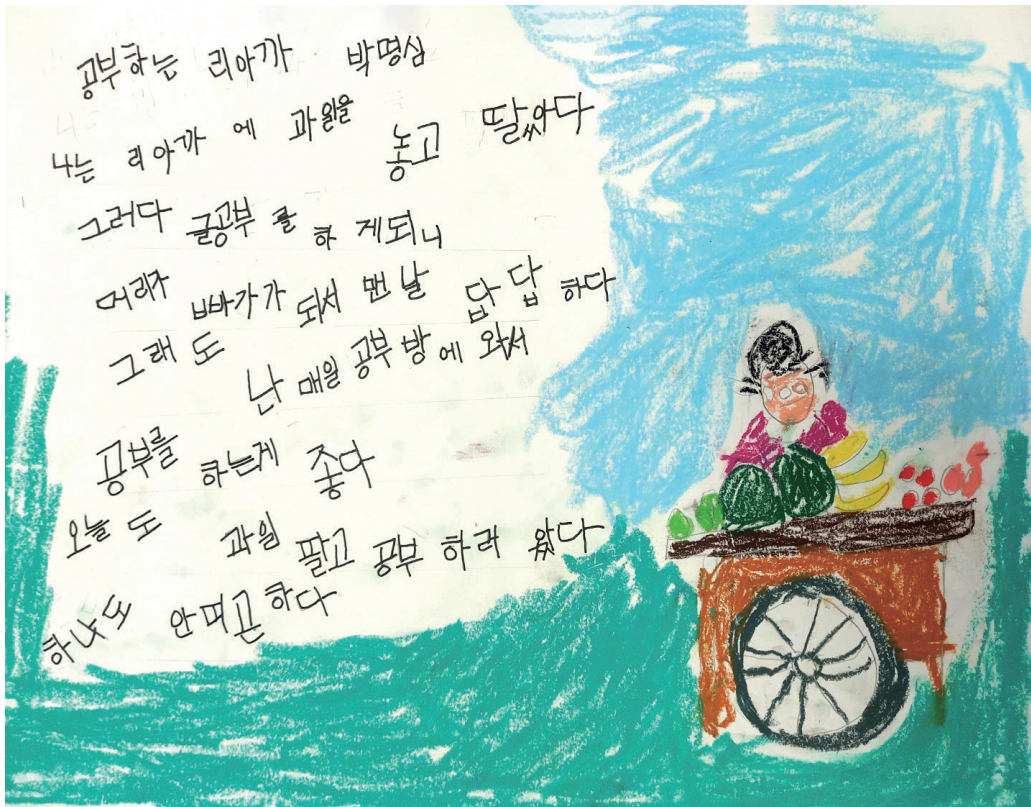 공부하는 리아까 박명심
나는 리아까 에 과일을 놓고 딸았다
그러다 글공부 를 하 게되니
머리가 빠가가 되서 맨날 답답 하다
그래 도 난 매일 공부방에 와서
공부를 하는게 좋다
오늘 도 과일 팔고 공부 하러 왔다
하나도 안피곤 하다